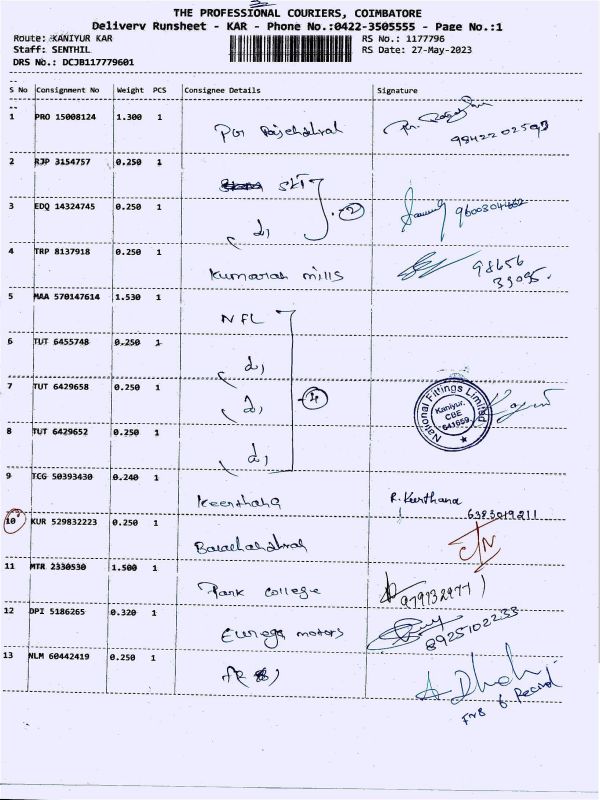 THE PROFESSIONAL COURIERS, COIMBATORE
Delivery Runsheet - KAR - Phone No.:0422-3505555 - Page No.:1
Route: KANIYUR KAR RS No.: 1177796
Staff: SENTHIL RS Date: 27-May-2023
DRS No.: DCJB117779601
S No Consignment No Weight PCS Consignee Details Signature
1 PRO 15008124 1.300 1
2 RJP 3154757 0.250 1
SKT
3 EDQ 14324745 0.250 1
2
4 TRP 8137918 0.250 1
Kumaran mills 98656
39095.
5 MAA 570147614 1.530 1
NFL
6 TUT 6455748 0.250 1
7 TUT 6429658 0.250 1
4
National Fittings Limited
Kaniyur.
CBE
641659.
8 TUT 6429652 0.250 1
9 TCG 50393430 0.240 1
Keerthana R. Keerthana
6383019211
10 KUR 529832223 0.250 1
11 MTR 2330530 1.500 1
Park college
12 DPI 5186265 0.320 1
motors 8925102233
13 NLM 60442419 0.250 1